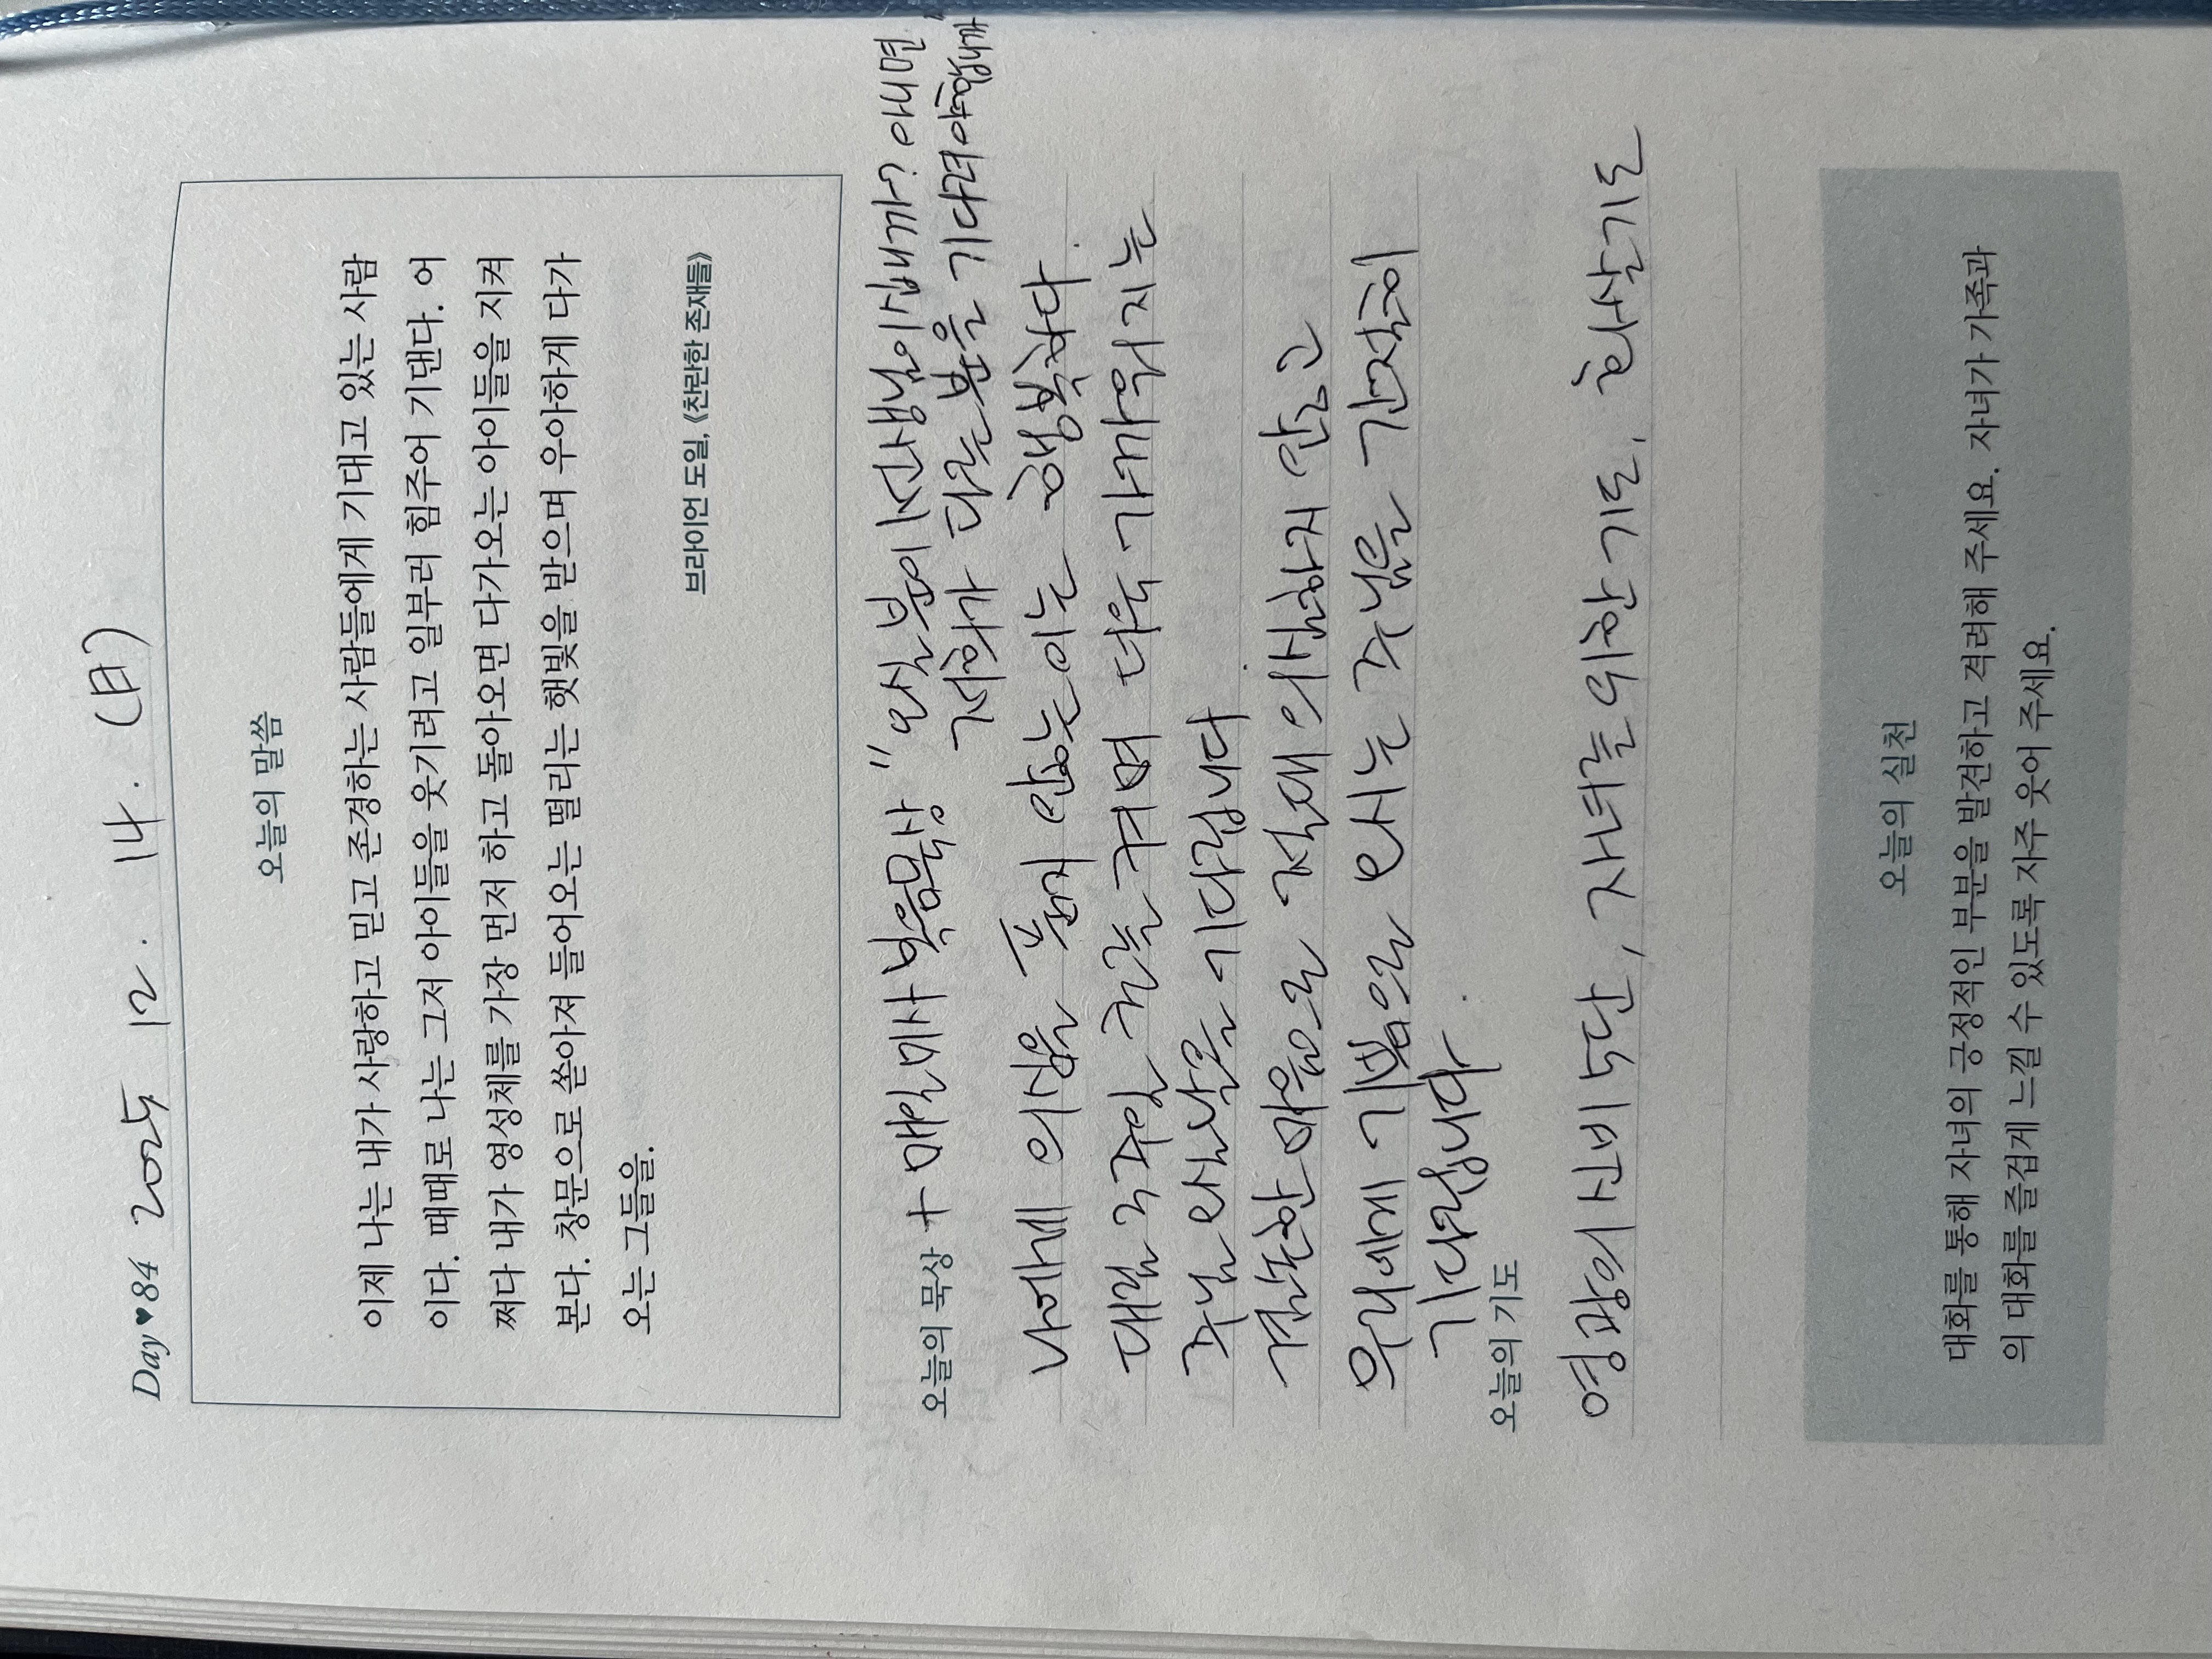 Day♥84 2025 12. 14. (日)
오늘의 말씀
이제 나는 내가 사랑하고 믿고 존경하는 사람들에게 기대고 있는 사람
이다. 때때로 나는 그저 아이들을 웃기려고 일부러 힘주어 기댄다. 어
쩌다 내가 영성체를 가장 먼저 하고 돌아오면 다가오는 아이들을 지켜
본다. 창문으로 쏟아져 들어오는 떨리는 햇빛을 받으며 우아하게 다가
오는 그들을.
브라이언 도일, 《찬란한 존재들》
오늘의 묵상 + 매일미사 복음묵상 "오실 분이 선생님이십니까? 아니면
저희가 다른 분을 기다려야 합니까"
나에게 의심을 품지 않는 이는 행복하다.
대림 3주일 촛불을 켜며 더욱 가까워지는
주님 오심날을 기다립니다
겸손한 마음으로 절대 의심하지 않고
우리에게 기쁨으로 오시는 주님을 간절히
기다립니다.
오늘의 기도
영광의 신비 5단, 자녀를 위한 기도, 화살기도
오늘의 실천
대화를 통해 자녀의 긍정적인 부분을 발견하고 격려해 주세요. 자녀가 가족과
의 대화를 즐겁게 느낄 수 있도록 자주 웃어 주세요.